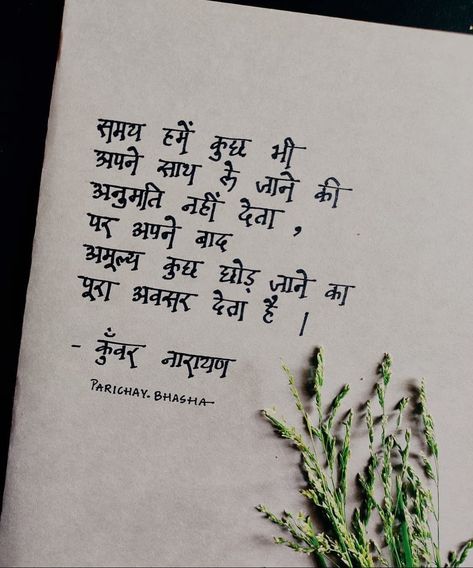 समय हमें कुछ भी
अपने साथ ले जाने की
अनुमति नहीं देता ,
पर अपने बाद
अमूल्य कुछ छोड़ जाने का
पूरा अवसर देता है |
- कुँवर नारायण
PARICHAY.BHASHA